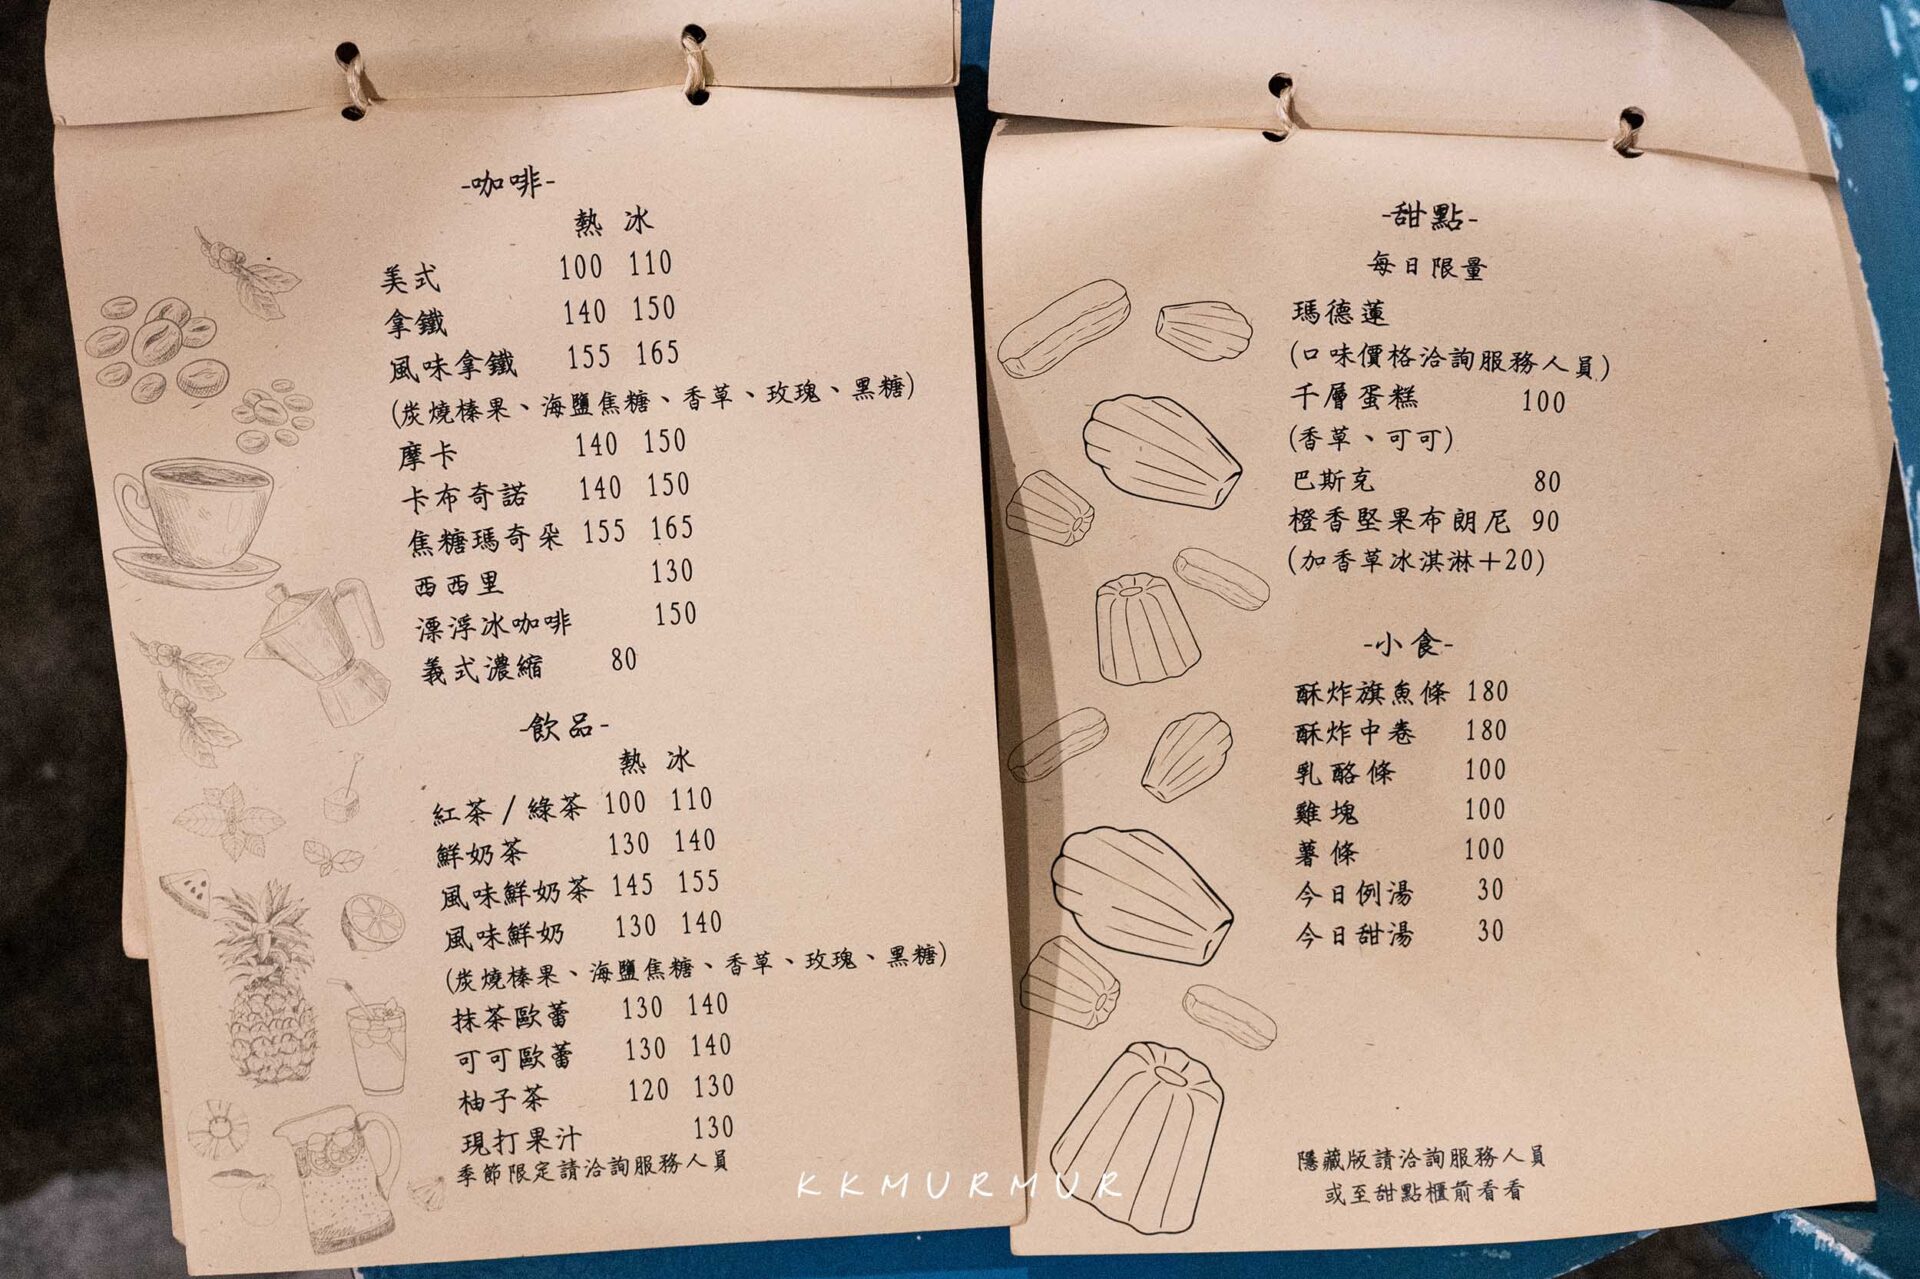 -咖啡-
熱 冰
美式 100 110
拿鐵 140 150
風味拿鐵 155 165
(炭燒榛果、海鹽焦糖、香草、玫瑰、黑糖)
摩卡 140 150
卡布奇諾 140 150
焦糖瑪奇朵 155 165
西西里 130
漂浮冰咖啡 150
義式濃縮 80
-飲品-
熱 冰
紅茶/綠茶 100 110
鮮奶茶 130 140
風味鮮奶茶 145 155
風味鮮奶 130 140
(炭燒榛果、海鹽焦糖、香草、玫瑰、黑糖)
抹茶歐蕾 130 140
可可歐蕾 130 140
柚子茶 120 130
現打果汁 130
季節限定請洽詢服務人員
-甜點-
每日限量
瑪德蓮
(口味價格洽詢服務人員)
千層蛋糕 100
(香草、可可)
巴斯克 80
橙香堅果布朗尼 90
(加香草冰淇淋+20)
-小食-
酥炸旗魚條 180
酥炸中卷 180
乳酪條 100
雞塊 100
薯條 100
今日例湯 30
今日甜湯 30
隱藏版請洽詢服務人員
或至甜點櫃前看看
KKMURMUR